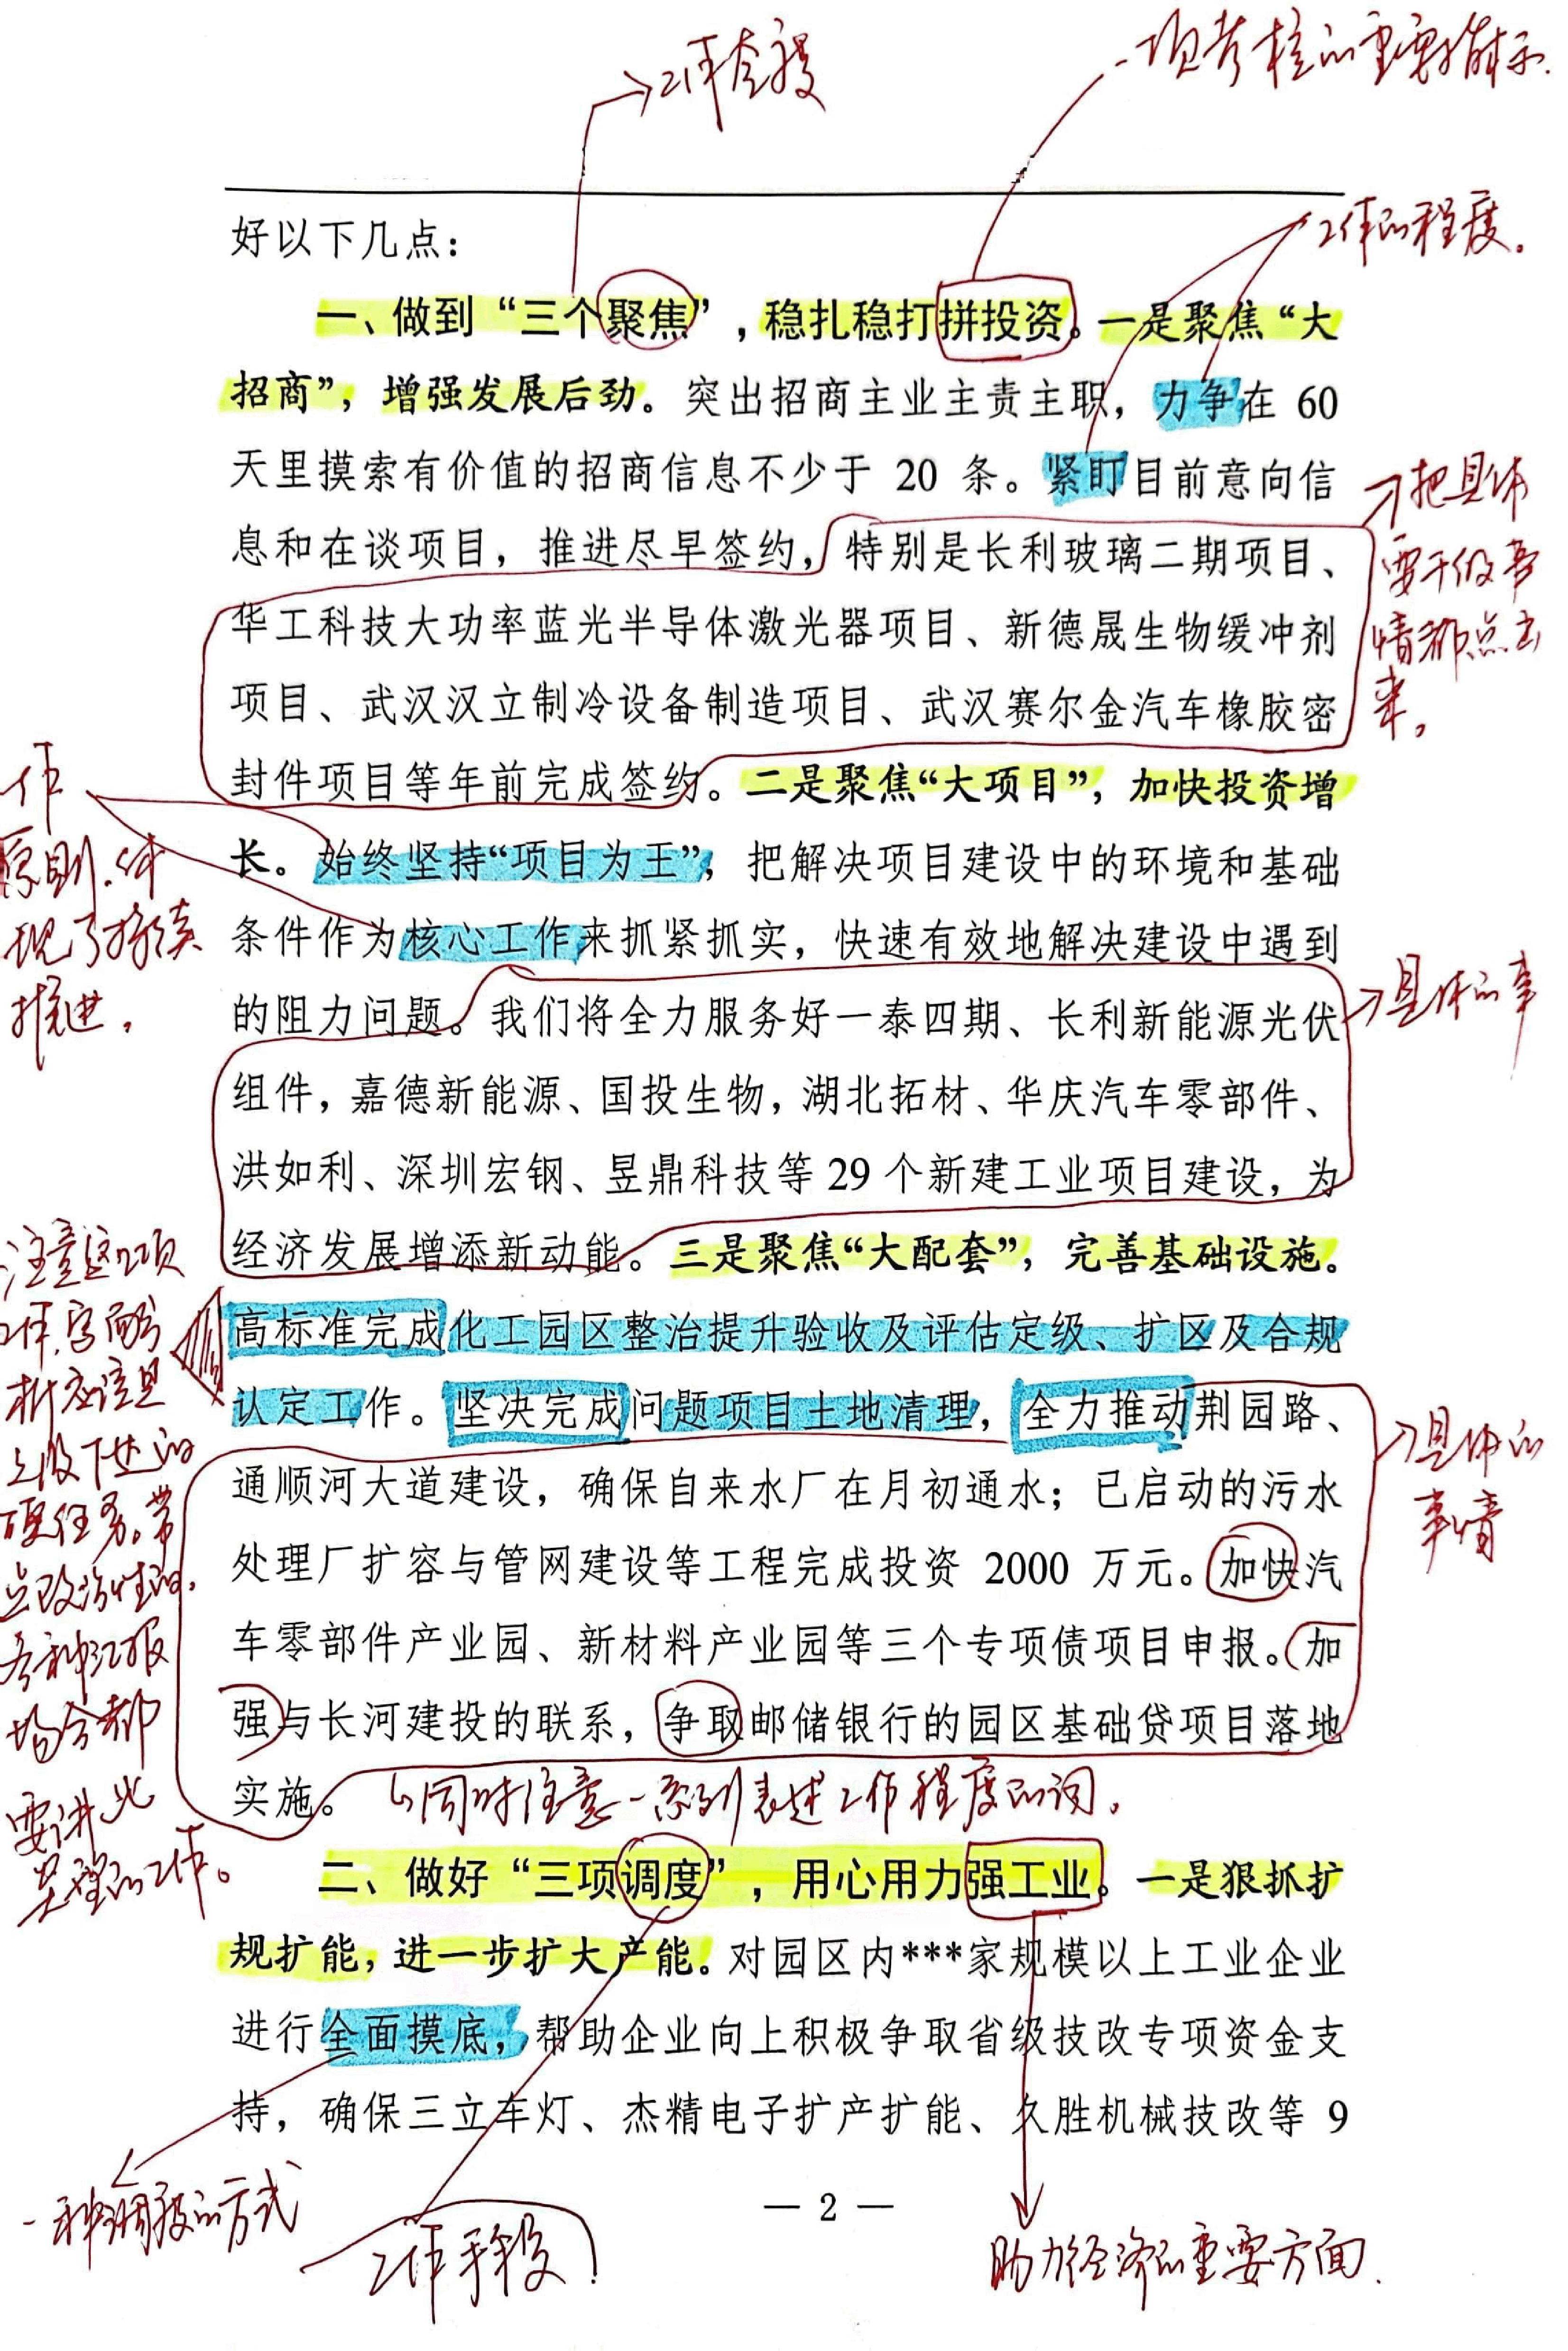 一项考核的重要指示.
工作的程度。
好以下几点：
一、做到“三个聚焦”，稳扎稳打拼投资。一是聚焦“大
招商”，增强发展后劲。突出招商主业主责主职，力争在 60
天里摸索有价值的招商信息不少于 20 条。紧盯目前意向信
息和在谈项目，推进尽早签约，特别是长利玻璃二期项目、
华工科技大功率蓝光半导体激光器项目、新德晟生物缓冲剂
项目、武汉汉立制冷设备制造项目、武汉赛尔金汽车橡胶密
封件项目等年前完成签约。二是聚焦“大项目”，加快投资增
长。始终坚持“项目为王”，把解决项目建设中的环境和基础
条件作为核心工作来抓紧抓实，快速有效地解决建设中遇到
的阻力问题。我们将全力服务好一泰四期、长利新能源光伏
组件，嘉德新能源、国投生物，湖北拓材、华庆汽车零部件、
洪如利、深圳宏钢、昱鼎科技等 29 个新建工业项目建设，为
经济发展增添新动能。三是聚焦“大配套”，完善基础设施。
高标准完成化工园区整治提升验收及评估定级、扩区及合规
认定工作。坚决完成问题项目土地清理，全力推动荆园路、
通顺河大道建设，确保自来水厂在月初通水；已启动的污水
处理厂扩容与管网建设等工程完成投资 2000 万元。加快汽
车零部件产业园、新材料产业园等三个专项债项目申报。加
强与长河建投的联系，争取邮储银行的园区基础贷项目落地
实施。
同时注意一系列表述工作程度的词。
二、做好“三项调度”，用心用力强工业。一是狠抓扩
规扩能，进一步扩大产能。对园区内***家规模以上工业企业
进行全面摸底，帮助企业向上积极争取省级技改专项资金支
持，确保三立车灯、杰精电子扩产扩能、久胜机械技改等 9
把具体
要干的事
情都点出
来。
具体的事
具体的
事情
作
原则.体
现了持续
推进，
注意这项
工作.字面分
析应该是
上级下达的
硬任务。带
点政治性的，
各种汇报
场合都
要讲此
工作。
一种调度的方式
工作手段
助力经济的重要方面.
— 2 —